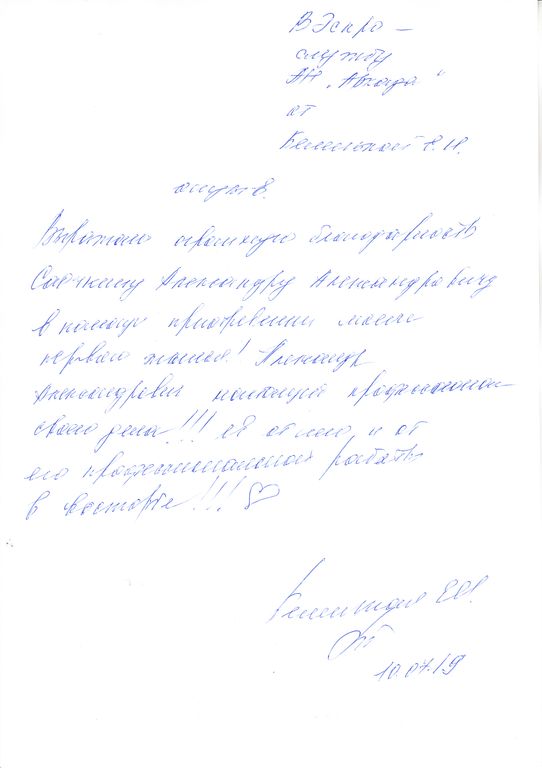 В Эскро-
службу
АН „Авеста"
от
Е.Н.
отзыв.
Выражаю огромную благодарность
Савчкину Александру Александровичу
в помощи приобретении моего
первого жилья! Александр
Александрович настоящий профессионал
своего дела!!! Я от него и от
его профессиональной работы
в восторге!!! ♡
Е.Н.
10.07.19